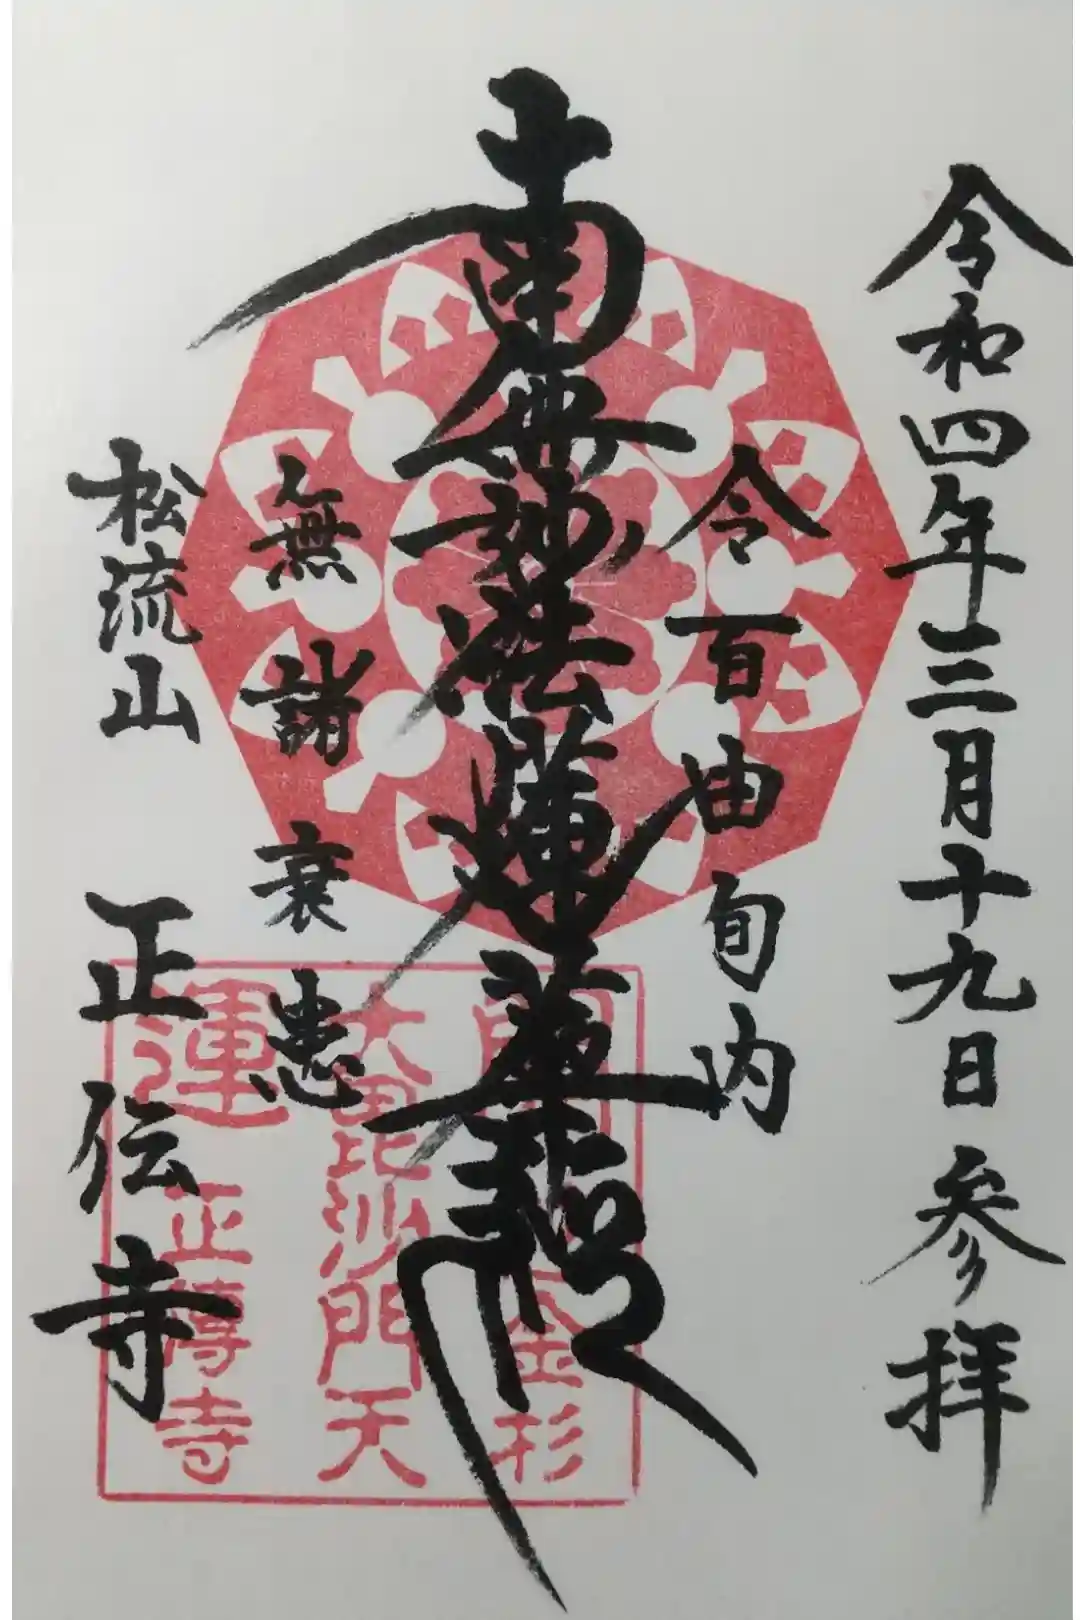 令和四年三月十九日参拝
令百由旬内
南無妙法蓮華経
無諸衰患
松流山 正伝寺
開
金杉
大毘沙門天
運
正傳寺